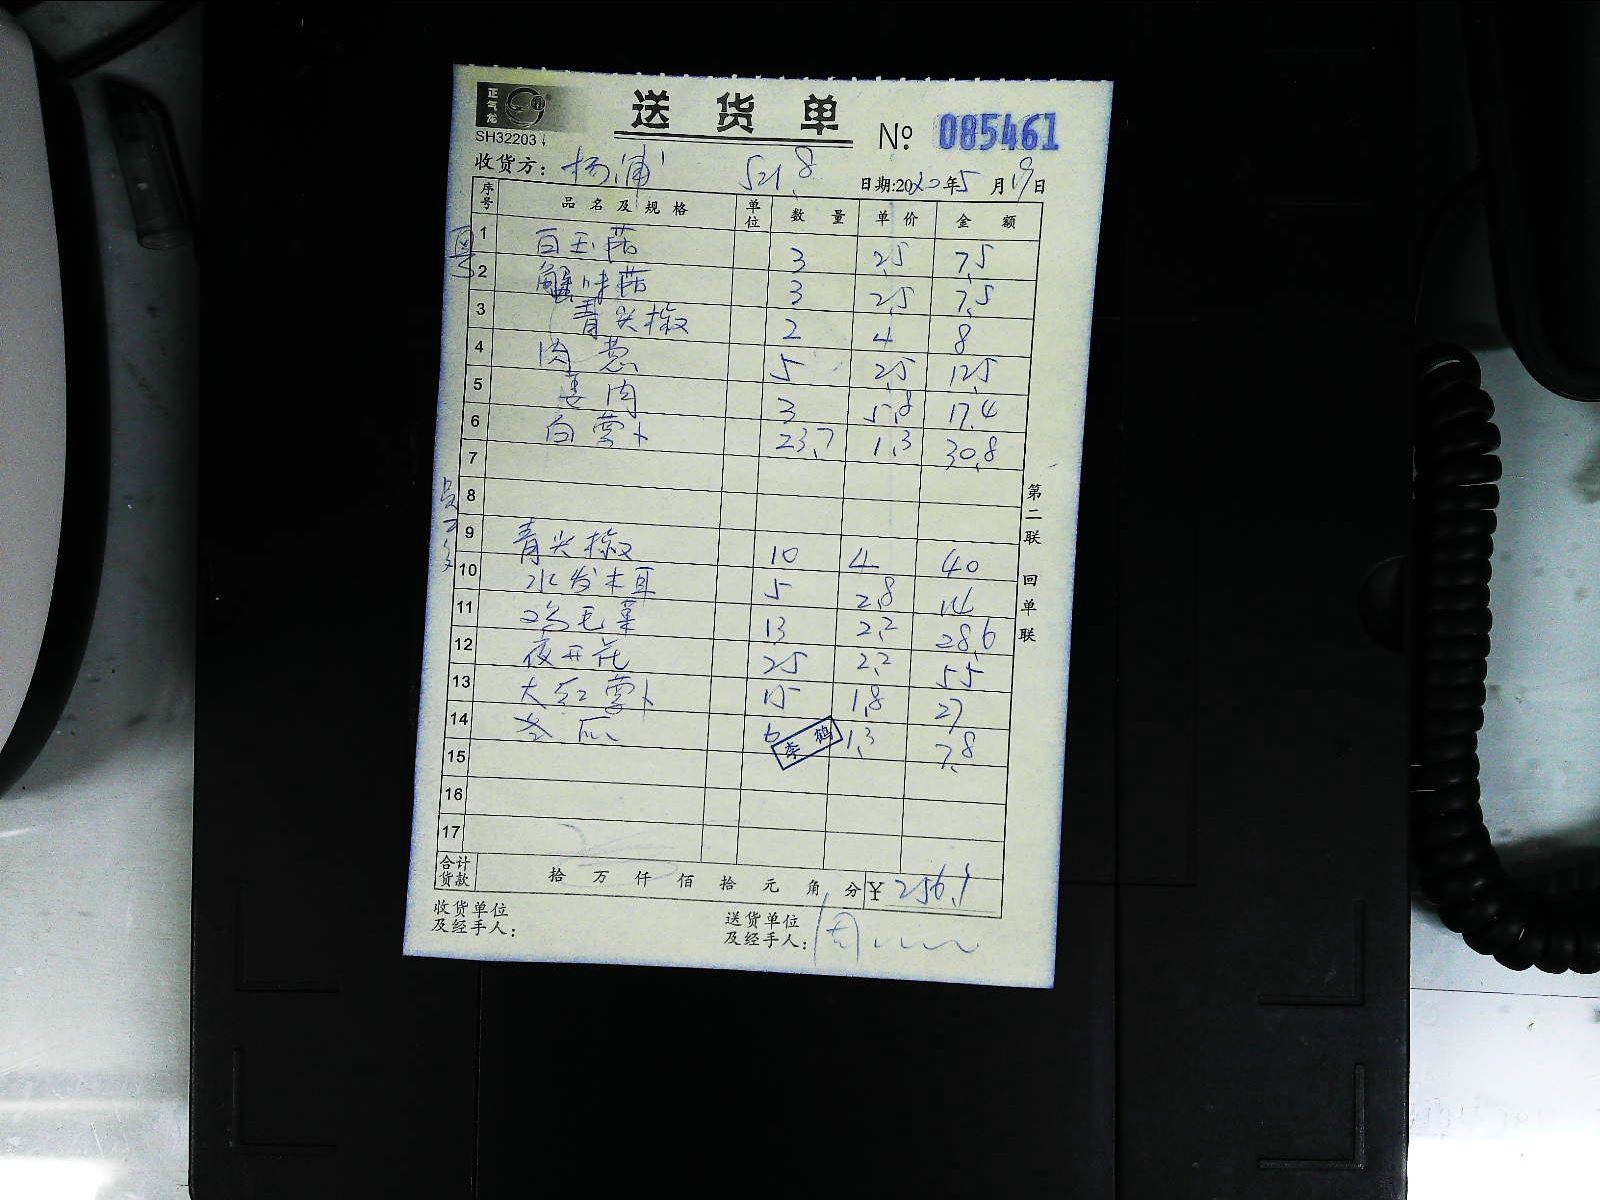 正气龙
SH32203
送货单
№ 085461
收货方: 杨浦 521.8 日期:2020年5月19日
序号 品名及规格 单位 数量 单价 金额
1 白玉菇 3 2.5 7.5
2 蟹味菇 3 2.5 7.5
3 青尖椒 2 4 8
4 肉葱 5 2.5 12.5
5 姜肉 3 5.8 17.4
6 白萝卜 23.7 1.3 30.8
7
8
9 青尖椒 10 4 40
10 水发木耳 5 2.8 14
11 鸡毛菜 13 2.2 28.6
12 夜开花 25 2.2 55
13 大红萝卜 15 1.8 27
14 冬瓜 6 1.3 7.8
李鹤
15
16
17
合计货款 拾 万 仟 佰 拾 元 角 分 ¥ 256.1
收货单位及经手人:
送货单位及经手人: 周
第二联 回单联
员工